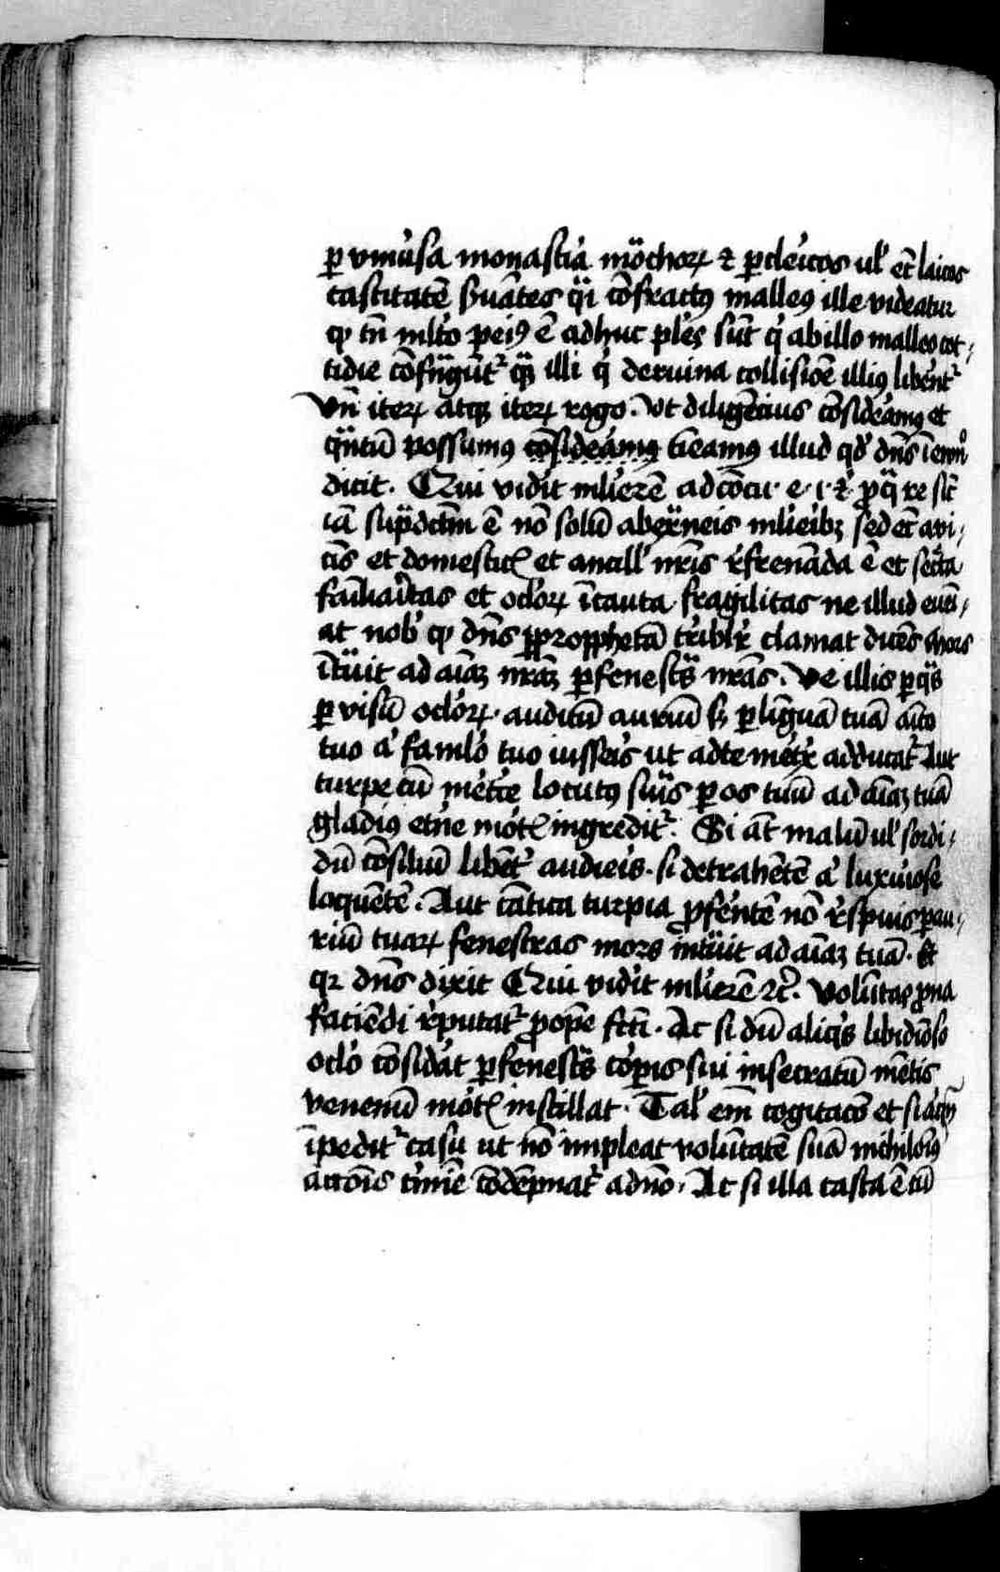 ꝑ vniu̓sa monast̓ia mo̎choꝝ ⁊ ꝑ cle̓icos ul̓ et̄ laicos
castitatē ẜuātes qͣi cōfractꝰ malleꝰ ille videatur
ꝙ tn̄ mlto peiꝰ ē adhuc ples sūt q̓ ab illo malleo cot⸗
tidie cōfri̎gūt᷑ qͣꝫ illi q̓ de ruina collisiōe illiꝰ libe̓nt᷑
Vn̄ iteꝝ atqꝫ iteꝝ rogo. Vt diligēcius cōside̓amꝰ et
qͣntū possumꝰ cōside̓amꝰ ti̅eamus illud qd̓ dn̄s ī ewͦ
dicit. Qui vidit mlie̓rē ad cōcu· e· ⁊ ꝓ qͣ re sic̄
iā supͣdictm̄ ē nō solū ab ext̎neis mlie̓ibꝫ sed et̄ a vi⸗
cis̄ et domestic̄ et ancill̓ nr̄is r̓frenāda ē et secͣta
familia̓itas et ocl̓oꝝ īcauta fragilitas ne illud euēi⸗
at nob̓ ꝙ dn̄s ꝑ prophetā t̓ribl̓r clamat dicēs Mors
īt̎uit ad aīaꝫ nr̄aꝫ ꝑ fenestͣs nr̄as. Ve illis ꝑ qͥs
ꝑ visū ocl̓oꝝ· auditū auriū s̄ꝫ ꝑ linguā tuā aīo
tuo a̓ famlo̓ tuo iusse̓is ut ad te me̓t̓x adducat᷑ Aut
turpe cū me̓t̓ce locutꝰ fu̎is ꝑ os tuū ad aīaꝫ tuā
gladiꝰ et̓ne mo̓t̄ ingredit᷑. Si at̄ malū ul̓ sordi⸗
dū cōsiliū libēt̓ audie̓is. si detrahētē a̓ luxu̓iose
loquētē. Aut cātica turpia ꝓfe̓ntē nō r̓spuis ꝑ au⸗
riū tuaꝝ fenestras mors int̎uit ad aīaꝫ tuā. Et
qꝛ dn̄s dixit Qui vidit mlie̓rē ⁊c̓. Volūtas ꝓna
faciēdi r̓putat᷑ ꝓ ope̓ fcti̅. Ac si dū aliqͥs libidiōso
oclo̓ cōside̓at ꝑ fenestͣs co̓ꝑis sui in secratū mētis
venenū mo̓t̄ instillat. Tal̓ em̄ cogitacō et si aliqn̄
īpedit᷑ casu ut nō impleat volūtatē suā nichilomiꝰ
accōis c̓m̄ie cōdēpnat᷑ a dn̄o. Ac si illa casta ē cū